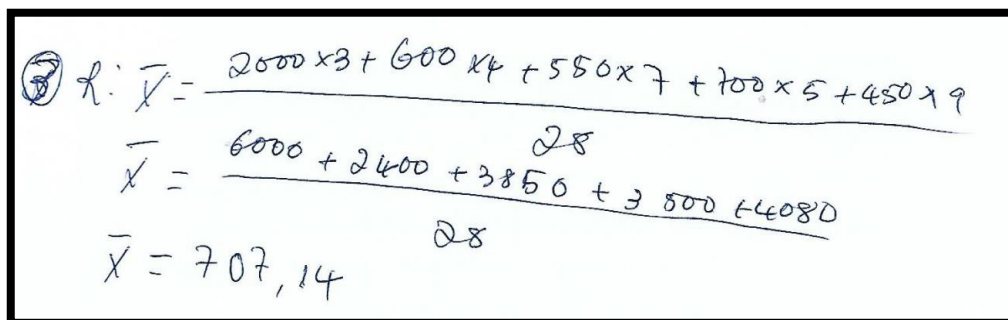 ③ R: X̄ = 2000 x3 + 600 x4 + 550 x 7 + 700 x 5 + 450 x 9
28
X̄ = 6000 + 2400 + 3850 + 3 500 + 4050
28
X̄ = 707,14